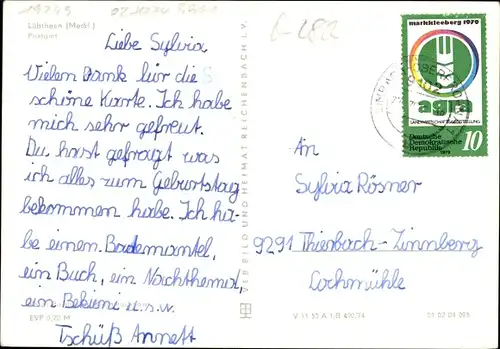 Lübtheen (Meckl.)
Postamt
Liebe Sylvia
Vielen Dank für die
schöne Karte. Ich habe
mich sehr gefreut.
Du hast gefragt was
ich alles zum Geburtstag
bekommen habe. Ich ha-
be einen Bademantel,
ein Buch, ein Nachthemd,
ein Bekini u.s.w.
Tschüß Annett
EVP 0,20 M
VEB BILD UND HEIMAT REICHENBACH I. V.
V 11 50 A 1/B 490/74
01 02 04 095
markkleeberg 1979
agra
LANDWIRTSCHAFTSAUSSTELLUNG
Deutsche
Demokratische
Republik 10
1979
An
Sylvia Rösner
9291 Thierbach-Zinnberg
Lochmühle